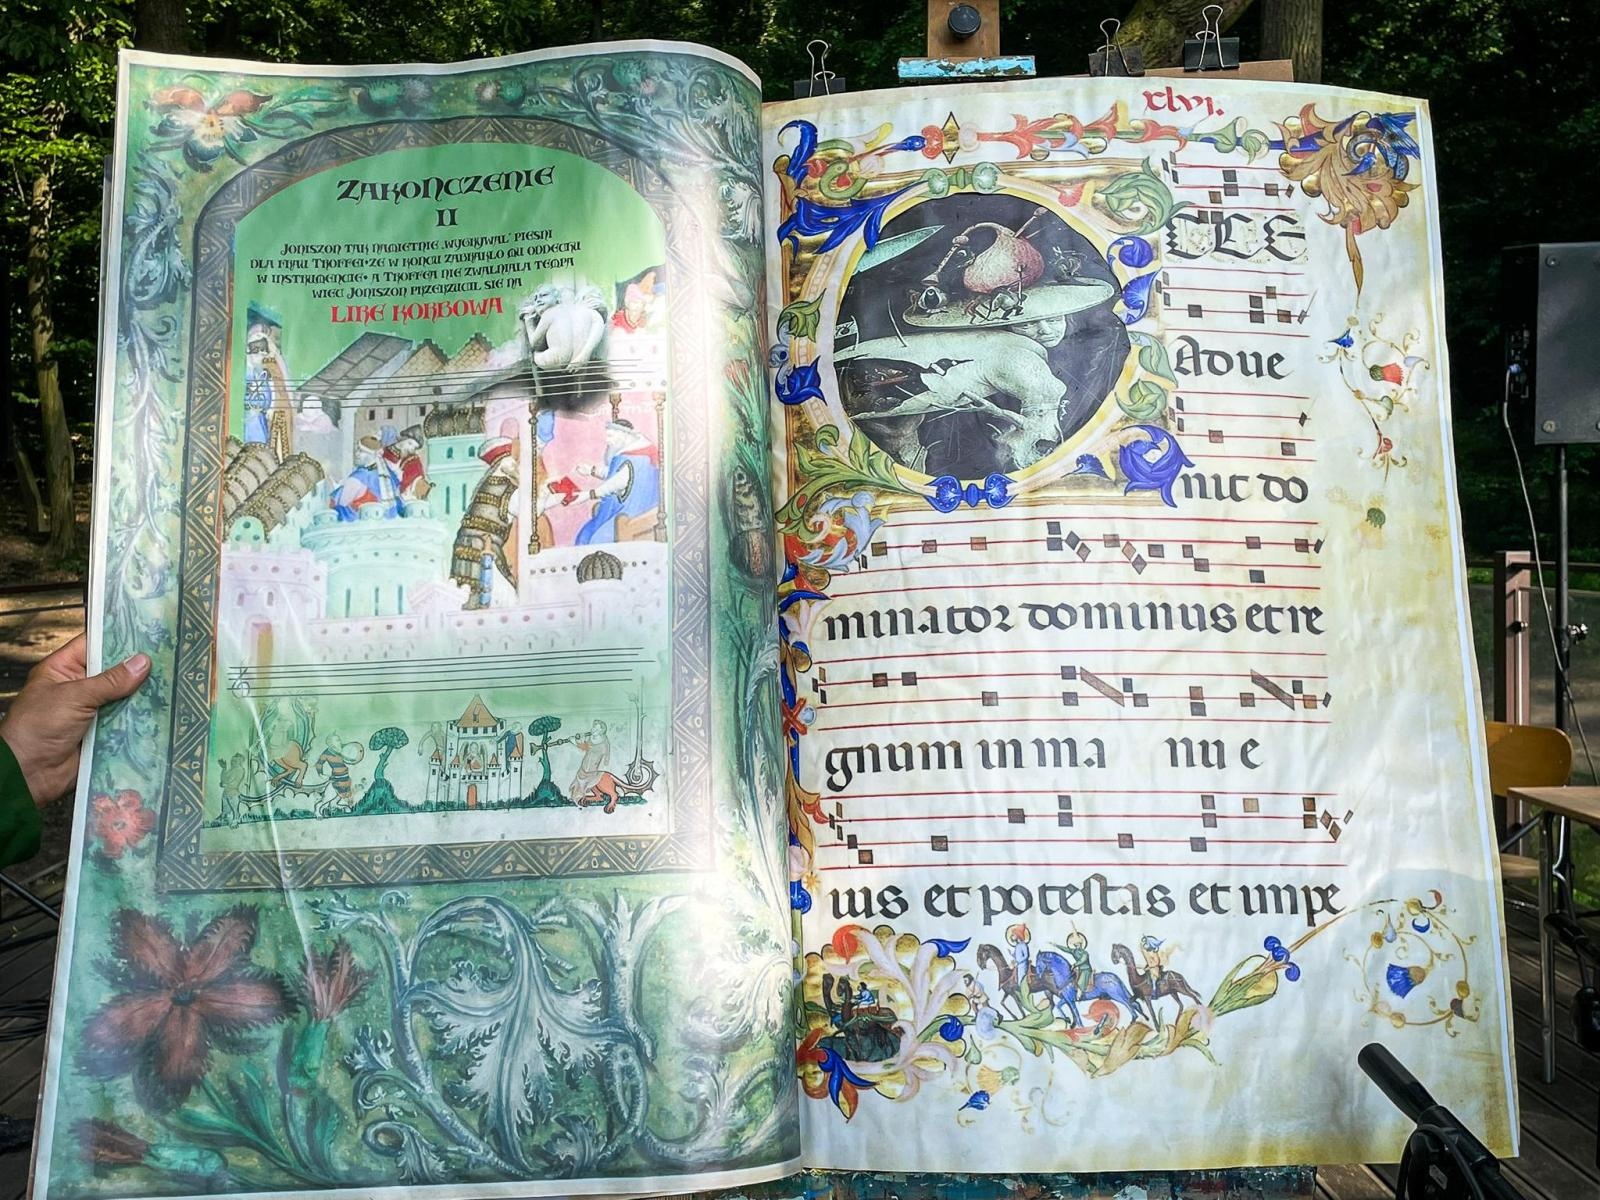 ZAKOŃCZENIE
II
JONISZON TAK NAMIĘTNIE „WYGRYWAŁ” PIEŚNI
DLA FRAU TROFFEI•ŻE W KOŃCU ZABRAKŁO MU ODDECHU
W INSTRUMENCIE• A TROFFEA NIE ZWALNIAŁA TEMPA
WIĘC JONISZON PRZERZUCIŁ SIĘ NA
LIRĘ KORBOWĄ
xlvj.
Adue
nit do
minator dominus et re
gnum in ma nu e
ius et potestas et impe